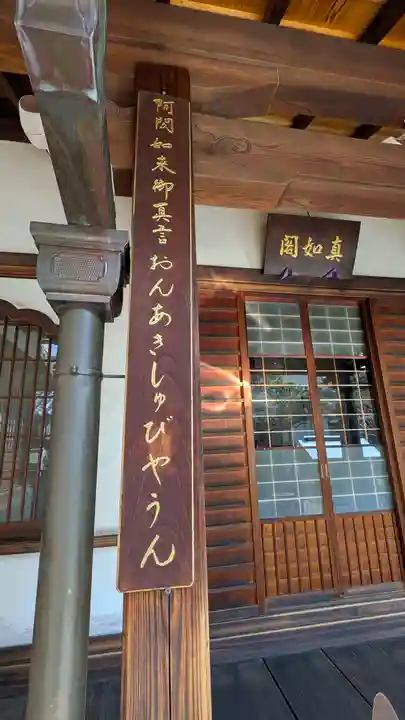 阿閦如来御真言 おんあきしゅびやうん
真如閣